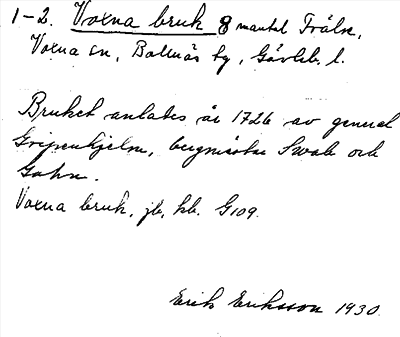 1-2. Voxna bruk 8 mantal Fräln,
Voxna sn, Bollnäs tg, Gävleb. l.
Bruket anlades år 1726 av general
Gripenhjelm, bergmästar Swab och
Gahn.
Voxna bruk, jb, kb. G109.
Erik Eriksson 1930